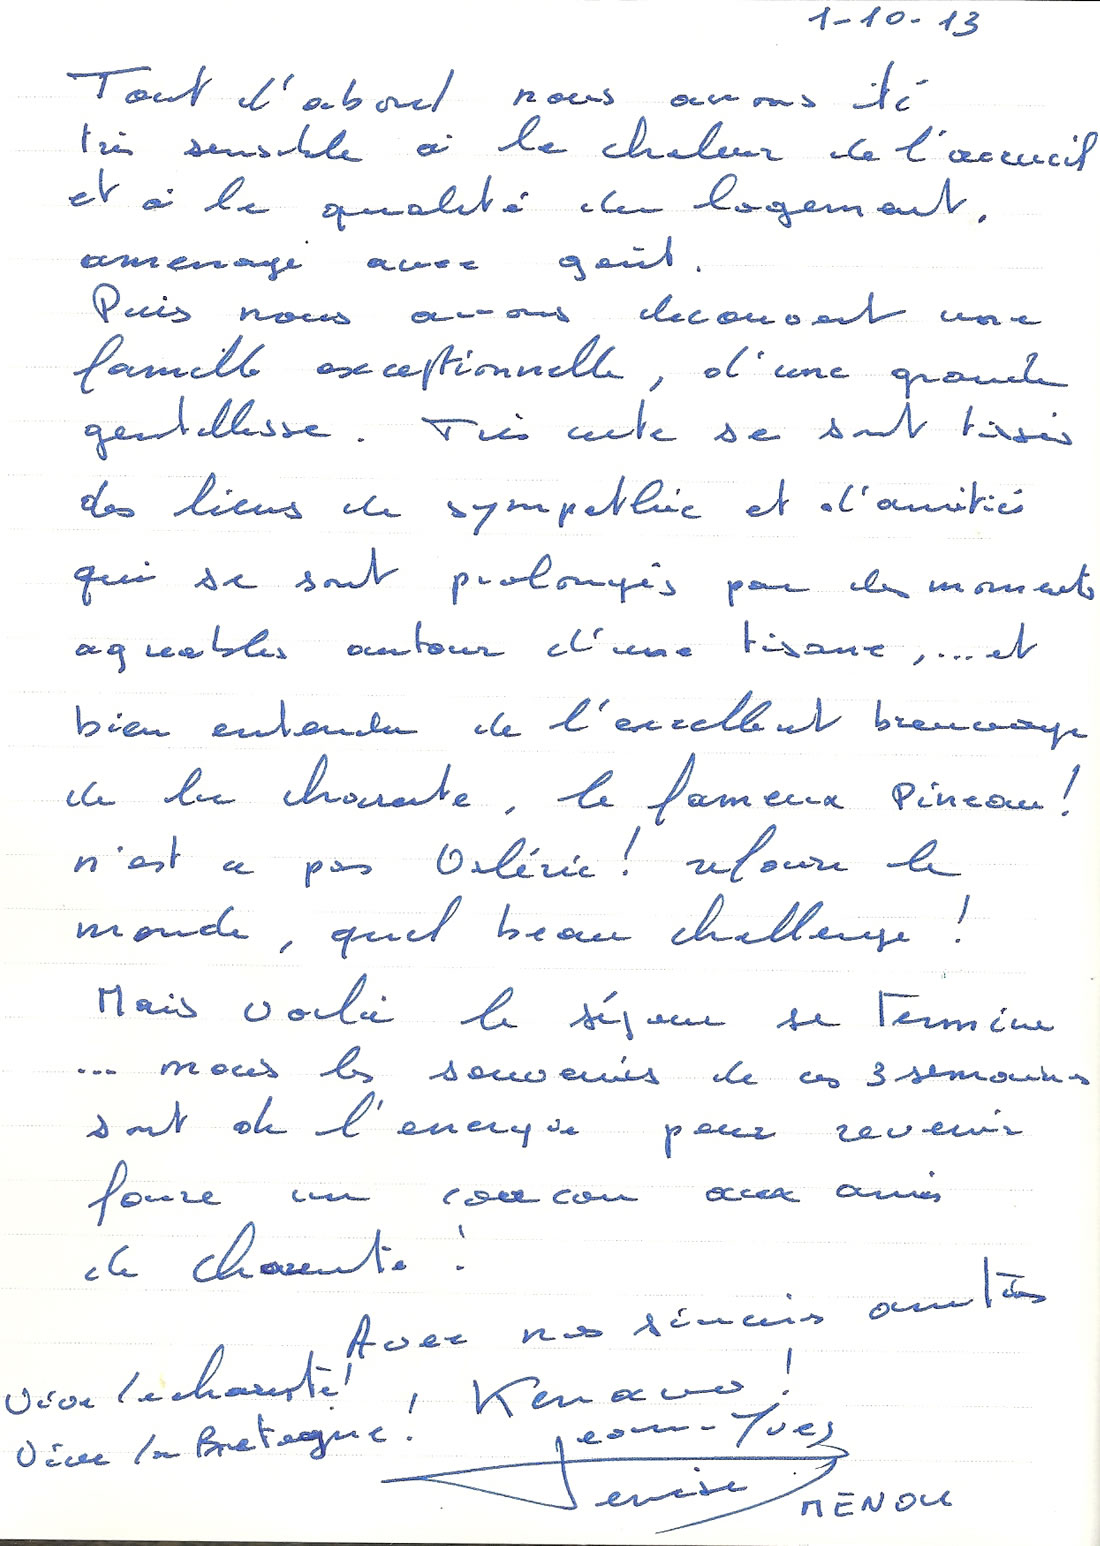 1-10-13
Tout d'abord nous avons été
très sensible à la chaleur de l'accueil
et à la qualité du logement,
amenagé avec goût.
Puis nous avons decouvert une
famille exceptionnelle, d'une grande
gentillesse. Très vite se sont tissés
des liens de sympathie et d'amitié
qui se sont prolongés par des moments
agreables autour d'une tisane, ... et
bien entendu de l'excellent breuvage
de la charente, le fameux Pineau!
n'est ce pas Valérie! refaire le
monde, quel beau challenge!
Mais voilà le séjour se Termine
... mais les souvenirs de ces 3 semaines
sont de l'energie pour revenir
faire un coucou aux amis
de charente!
Avec nos sincères amitiés
Vive la charente! Kenavo!
Vive la Bretagne! Jean-Yves
Denise MENOU